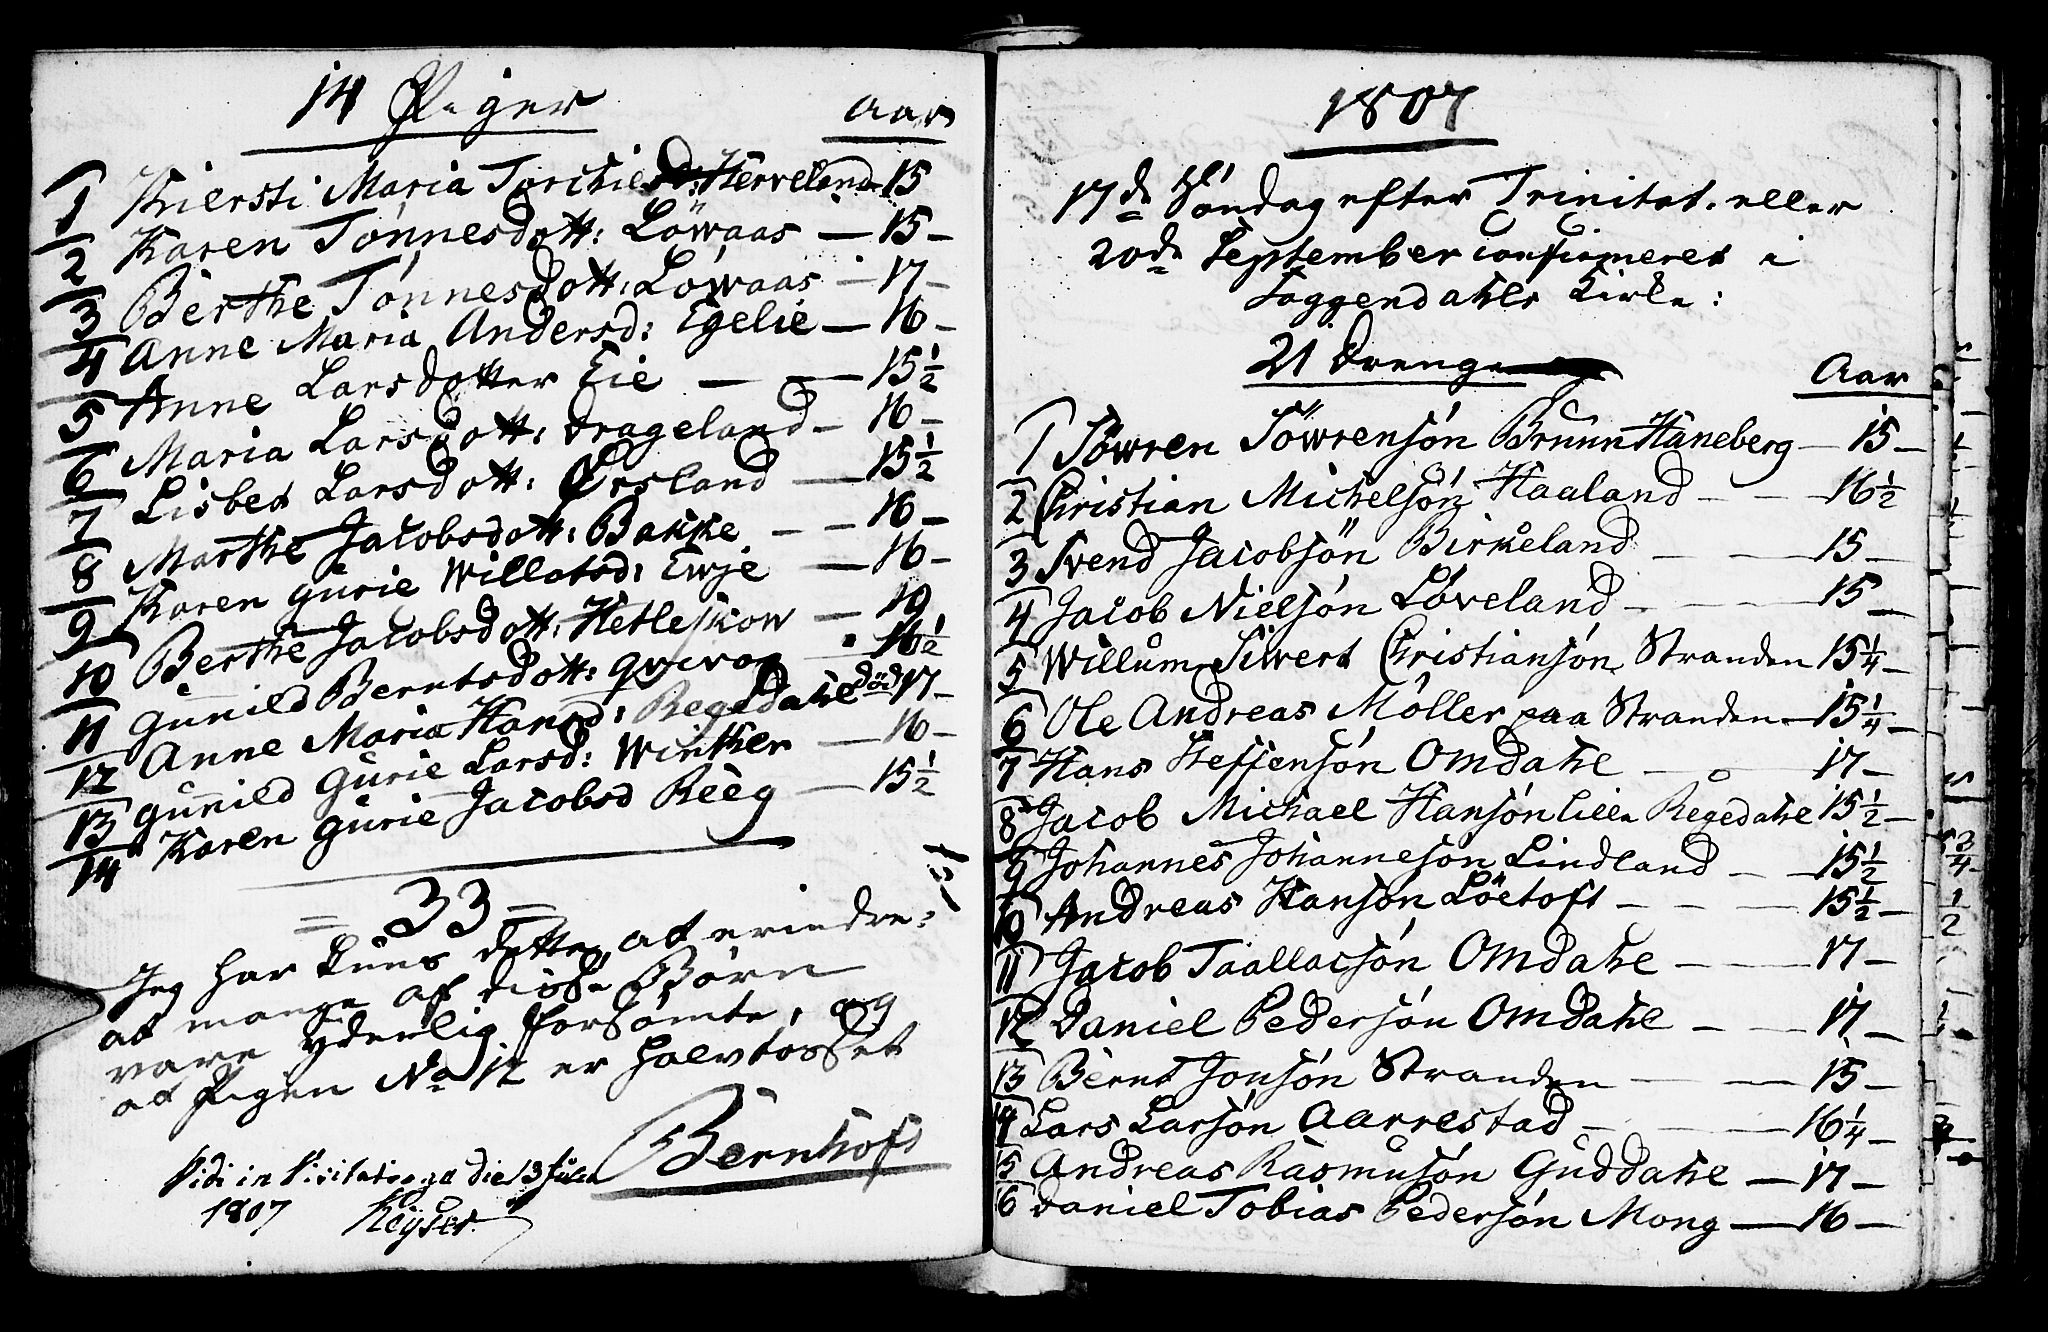 14 Piger
Aar
1 Kiersti Maria Torchiesd: Herveland 15
2 Karen Tönnesdott: Löwaas — 15 —
3 Berthe Tönnesdott: Löwaas — 17 —
4 Anne Maria Andersd: Egelie — 16 —
5 Anne Larsdotter Eie — — 15½
6 Maria Larsdott: Drageland — 16 —
7 Lisbet Larsdott: Ørsland — 15½
8 Marthe Jacobsdott: Bakke — — 16 —
9 Karen Gurie Willatsd: Ewje — 16 —
10 Berthe Jacobsdott: Hetleskow — 19
11 Gunild Berntsdott: 16½
12 Anne Maria Hansd: Regedahl död 17 —
13 Gunild Gurie Larsd: Winther — 16 —
14 Karen Gurie Jacobsd Reeg — 15½
= 33 =
Jeg har kuns dette at erindre:
at mange af disse Börn
vare yderlig forsömte, og
at Pigen No 12 er halvtosset
Bernhoft
Vidi in Visitatione d die 13 Julii
1807 Keyser
1807
17de Söndag efter Trinitat. eller
20de September confirmeret i
Soggendahls Kirke:
21 Drenge
Aar
1 Söwren Söwrensön Brunn Haneberg — 15 —
2 Christian Michelsön Haaland — — 16½
3 Svend Jacobsön Birkeland — — 15 —
4 Jacob Nielsön Löveland — — 15 —
5 Willum Siwert Christiansön Stranden 15¼ —
6 Ole Andreas Möller paa Stranden — 15¼ —
7 Hans Steffensön Omdahl — — 17 —
8 Jacob Michael Hansön Regedahl 15½ —
9 Johannes Johannesön Lindland — — 15½
10 Andreas Hansön Löetoft — — — 15½ —
11 Jacob Taallacsön Omdahl — — 17 —
12 Daniel Pedersön Omdahl — — 17 —
13 Bernt Jonsön Stranden — — 15 —
14 Lars Larsön Aarrestad — — 16¼ —
15 Andreas Rasmusön Guddahl — 17 —
16 Daniel Tobias Pedersön Mong — 16 —